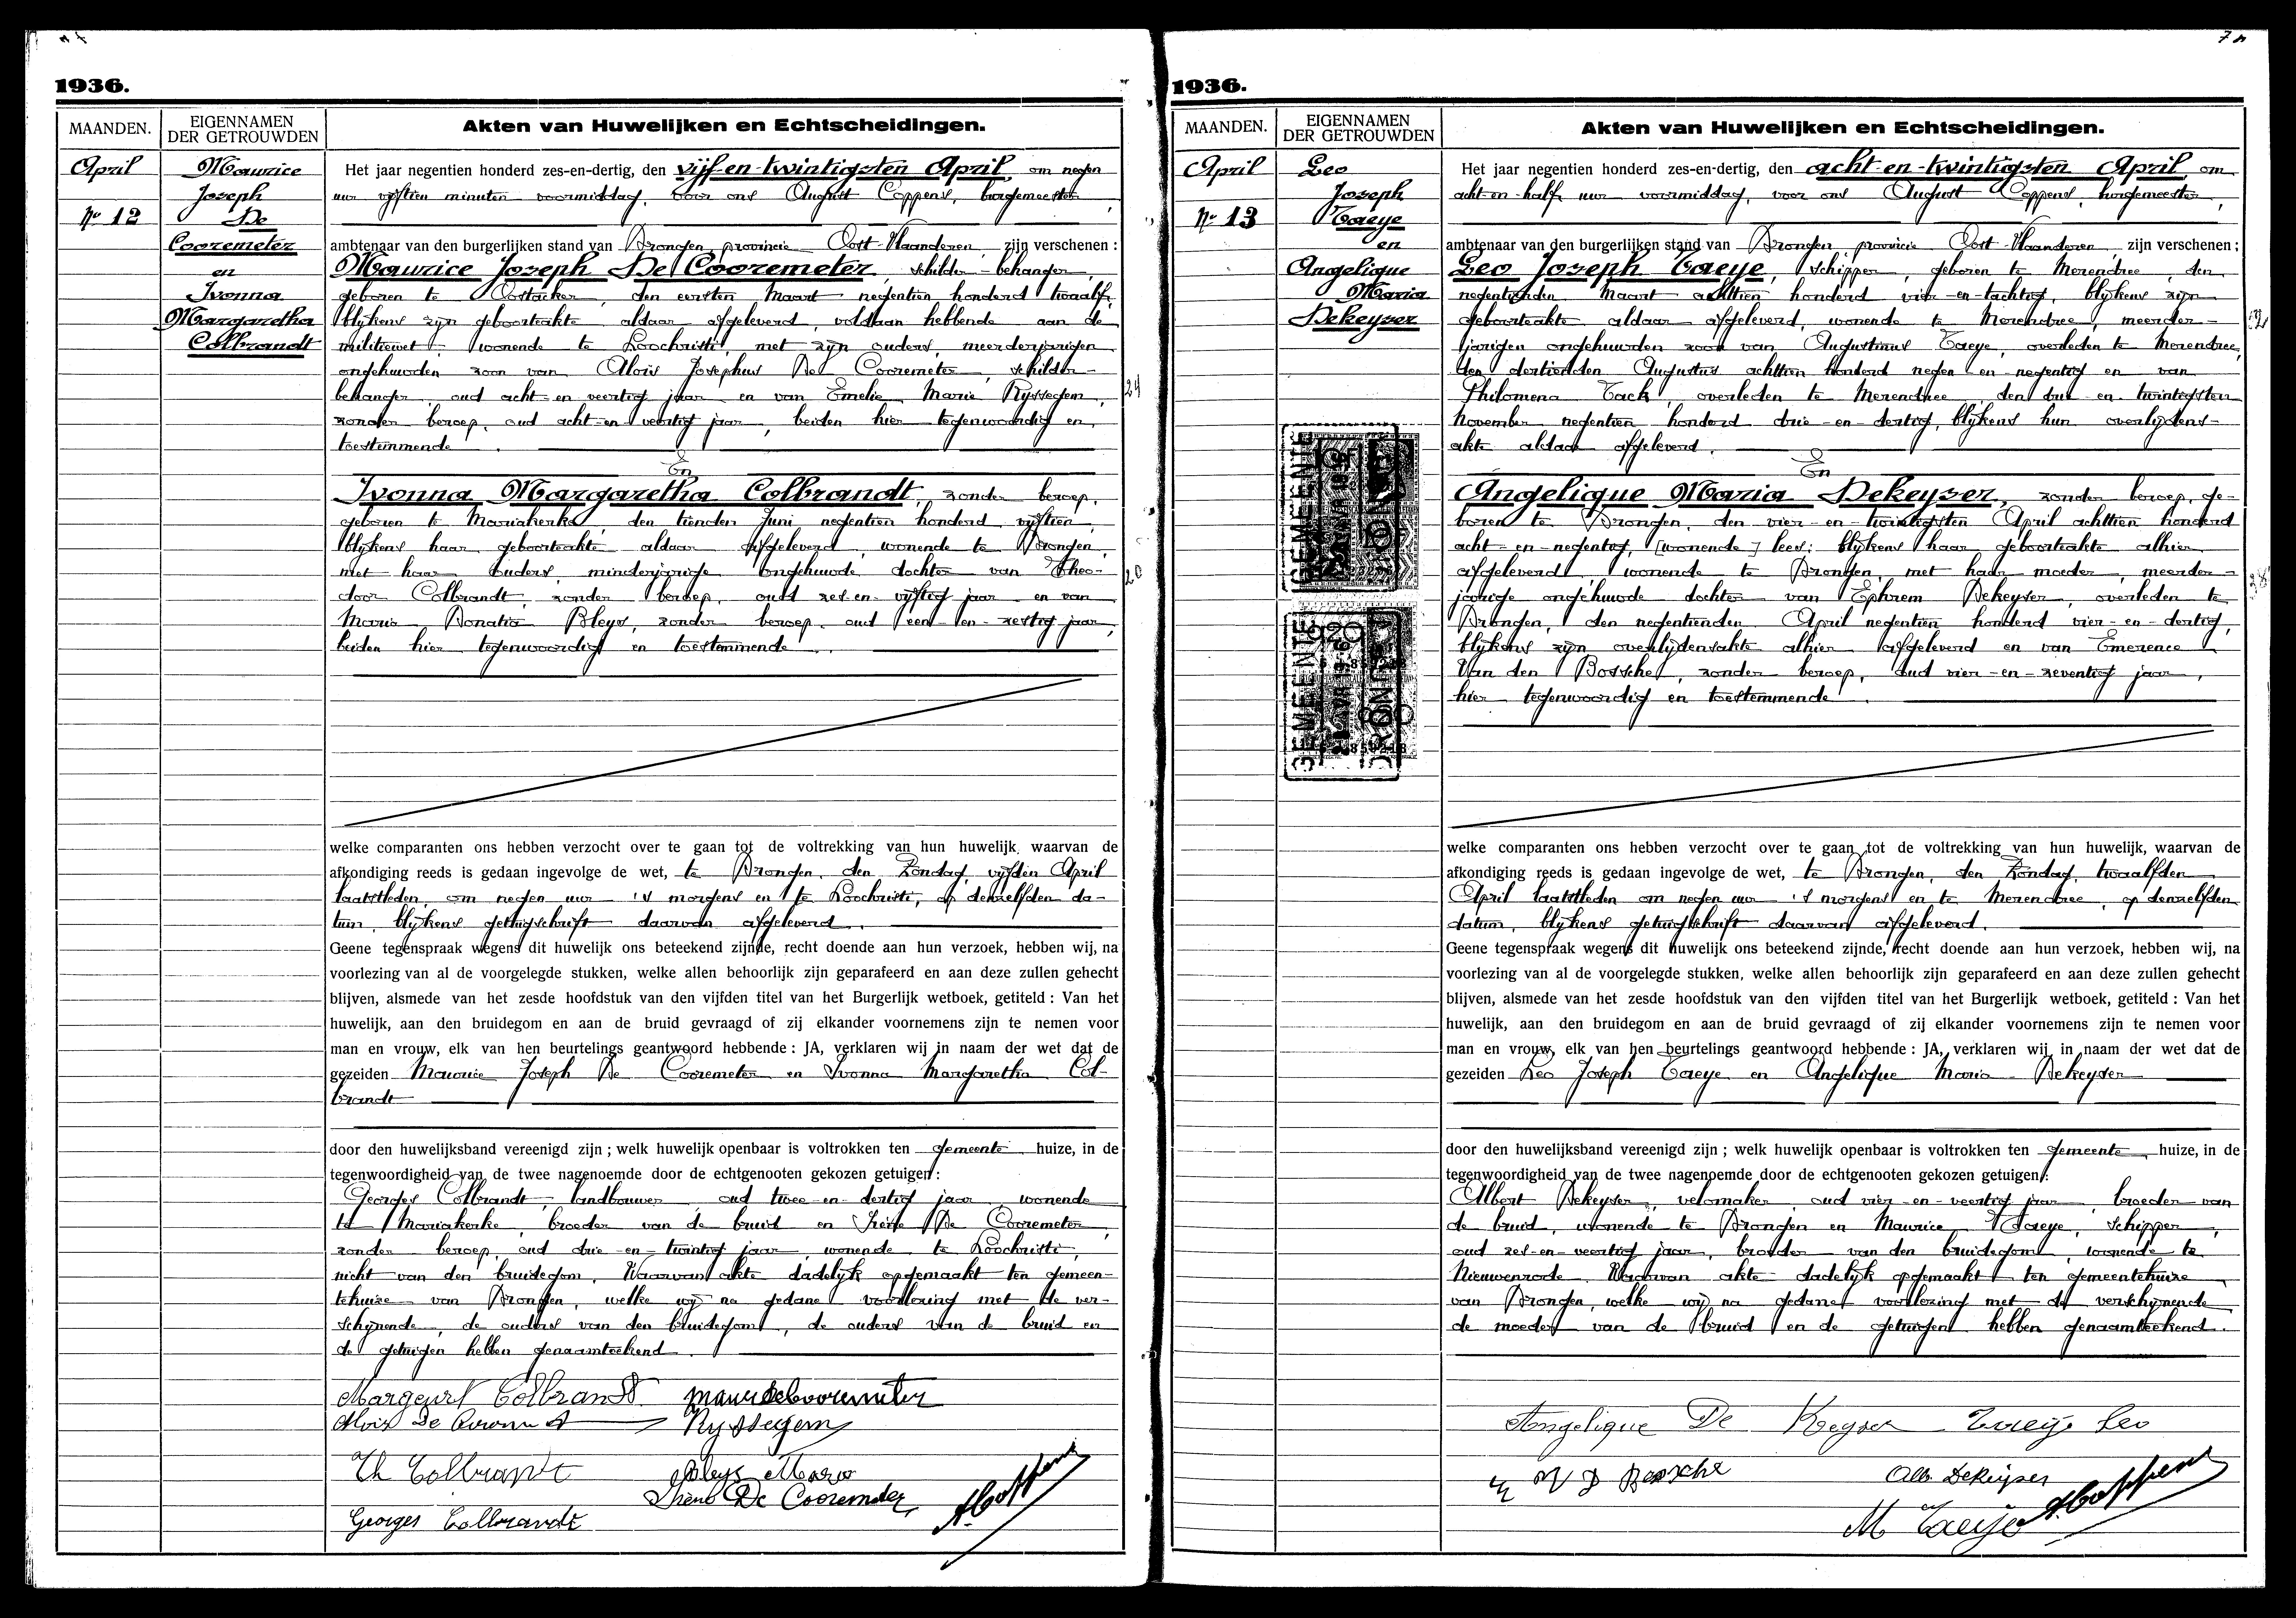 1936.
MAANDEN.
EIGENNAMEN
DER GETROUWDEN
Akten van Huwelijken en Echtscheidingen.
April
No 12
Maurice
Joseph
De
Cooremeter
en
Ivonna
Margaretha
Colbrandt
Het jaar negentien honderd zes-en-dertig, den vijf-en-twintigsten April, om negen
uur vijftien minuten voormiddag, voor ons August Coppens, burgemeester,
ambtenaar van den burgerlijken stand van Drongen, provincie Oost-Vlaanderen, zijn verschenen :
Maurice Joseph De Cooremeter, schilder-behanger,
geboren te Oostacker, den eersten Maart negentien honderd twaalf,
blijkens zijn geboorteakte aldaar afgeleverd, voldaan hebbende aan de
militiewet, wonende te Loochristi, met zijn ouders, meerderjarigen
ongehuwden zoon van Aloïs Josephus De Cooremeter, schilder-
behanger, oud acht-en veertig jaar en van Emelie Marie Rijssegem,
zonder beroep, oud acht-en veertig jaar, beiden hier tegenwoordig en
toestemmende.
En
Ivonna Margaretha Colbrandt, zonder beroep,
geboren te Mariakerke, den tienden Juni negentien honderd vijftien,
blijkens haar geboorteakte aldaar afgeleverd, wonende te Drongen,
met haar ouders, minderjarige ongehuwde dochter van Theo-
door Colbrandt, zonder beroep, oud zes-en-vijftig jaar en van
Maria Donatia Bleys, zonder beroep, oud een-en-zestig jaar,
beiden hier tegenwoordig en toestemmende.
welke comparanten ons hebben verzocht over te gaan tot de voltrekking van hun huwelijk, waarvan de
afkondiging reeds is gedaan ingevolge de wet, te Drongen, den Zondag, vijfden April
laatstleden, om negen uur 's morgens en te Loochristi, op denzelfden da-
tum, blijkens getuigschrift daarvan afgeleverd.
Geene tegenspraak wegens dit huwelijk ons beteekend zijnde, recht doende aan hun verzoek, hebben wij, na
voorlezing van al de voorgelegde stukken, welke allen behoorlijk zijn geparafeerd en aan deze zullen gehecht
blijven, alsmede van het zesde hoofdstuk van den vijfden titel van het Burgerlijk wetboek, getiteld : Van het
huwelijk, aan den bruidegom en aan de bruid gevraagd of zij elkander voornemens zijn te nemen voor
man en vrouw, elk van hen beurtelings geantwoord hebbende : JA, verklaren wij in naam der wet dat de
gezeiden Maurice Joseph De Cooremeter en Ivonna Margaretha Col-
brandt
door den huwelijksband vereenigd zijn ; welk huwelijk openbaar is voltrokken ten gemeente huize, in de
tegenwoordigheid van de twee nagenoemde door de echtgenooten gekozen getuigen :
Georges Colbrandt, landbouwer oud twee-en-dertig jaar, wonende
te Mariakerke, broeder van de bruid en Irène De Cooremeter,
zonder beroep, oud drie-en-twintig jaar, wonende te Loochristi,
nicht van den bruidegom. Waarvan akte dadelijk opgemaakt ten gemeen-
tehuize van Drongen, welke wij na gedane voorlezing met de ver-
schijnende, de ouders van den bruidegom, de ouders van de bruid en
de getuigen hebben genaamteekend.
Margeurt Colbrandt
Aloïs De
Rijssegem
Th Colbrandt
Bleys Maria
Irène De Cooremeter
Georges Colbrandt
A. Coppens
7
1936.
MAANDEN.
EIGENNAMEN
DER GETROUWDEN
Akten van Huwelijken en Echtscheidingen.
April
No 13
Leo
Joseph
Taeye
en
Angelique
Maria
Dekeyser
GEMEENTE
DRONGEN
GEMEENTE
DRONGEN
Het jaar negentien honderd zes-en-dertig, den acht-en-twintigsten April, om
acht-en-half uur voormiddag, voor ons August Coppens, burgemeester,
ambtenaar van den burgerlijken stand van Drongen, provincie Oost-Vlaanderen, zijn verschenen ;
Leo Joseph Taeye, schipper, geboren te Merendree, den
negentienden Maart achttien honderd vier-en-tachtig, blijkens zijn
geboorteakte aldaar afgeleverd, wonende te Merendree, meerder-
jarigen ongehuwden zoon van Augustinus Taeye, overleden te Merendree,
den dertienden Augustus achttien honderd negen-en-negentig en van
Philomena Tack, overleden te Merendree, den drie-en-twintigsten
November negentien honderd drie-en-dertig, blijkens hun overlijdens-
akte aldaar afgeleverd.
En
Angelique Maria Dekeyser, zonder beroep, ge-
boren te Drongen, den vier-en-twintigsten April achttien honderd
acht-en-negentig, [wonende] lees: blijkens haar geboorteakte alhier
afgeleverd, wonende te Drongen, met haar moeder, meerder-
jarige ongehuwde dochter van Ephrem Dekeyser, overleden te
Drongen, den negentienden April negentien honderd vier-en-dertig,
blijkens zijn overlijdensakte alhier afgeleverd en van Emerence
Van den Bossche, zonder beroep, oud vier-en-zeventig jaar,
hier tegenwoordig en toestemmende.
welke comparanten ons hebben verzocht over te gaan tot de voltrekking van hun huwelijk, waarvan de
afkondiging reeds is gedaan ingevolge de wet, te Drongen, den Zondag, twaalfden
April laatstleden om negen uur 's morgens en te Merendree, op denzelfden
datum, blijkens getuigschrift daarvan afgeleverd.
Geene tegenspraak wegens dit huwelijk ons beteekend zijnde, recht doende aan hun verzoek, hebben wij, na
voorlezing van al de voorgelegde stukken, welke allen behoorlijk zijn geparafeerd en aan deze zullen gehecht
blijven, alsmede van het zesde hoofdstuk van den vijfden titel van het Burgerlijk wetboek, getiteld : Van het
huwelijk, aan den bruidegom en aan de bruid gevraagd of zij elkander voornemens zijn te nemen voor
man en vrouw, elk van hen beurtelings geantwoord hebbende : JA, verklaren wij in naam der wet dat de
gezeiden Leo Joseph Taeye en Angelique Maria Dekeyser
door den huwelijksband vereenigd zijn ; welk huwelijk openbaar is voltrokken ten gemeente huize, in de
tegenwoordigheid van de twee nagenoemde door de echtgenooten gekozen getuigen :
Albert Dekeyser, velomaker, oud vier-en-veertig jaar, broeder van
de bruid, wonende te Drongen en Maurice Taeye, schipper,
oud zes-en-veertig jaar, broeder van den bruidegom, wonende te
Nieuwenrode. Waarvan akte dadelijk opgemaakt ten gemeentehuize
van Drongen, welke wij na gedane voorlezing met de verschijnende,
de moeder van de bruid en de getuigen hebben genaamteekend.
Angelique De Keyser Taeije Leo
E V D Bossche
Alb. Dekeijser
M Taeije
A. Coppens